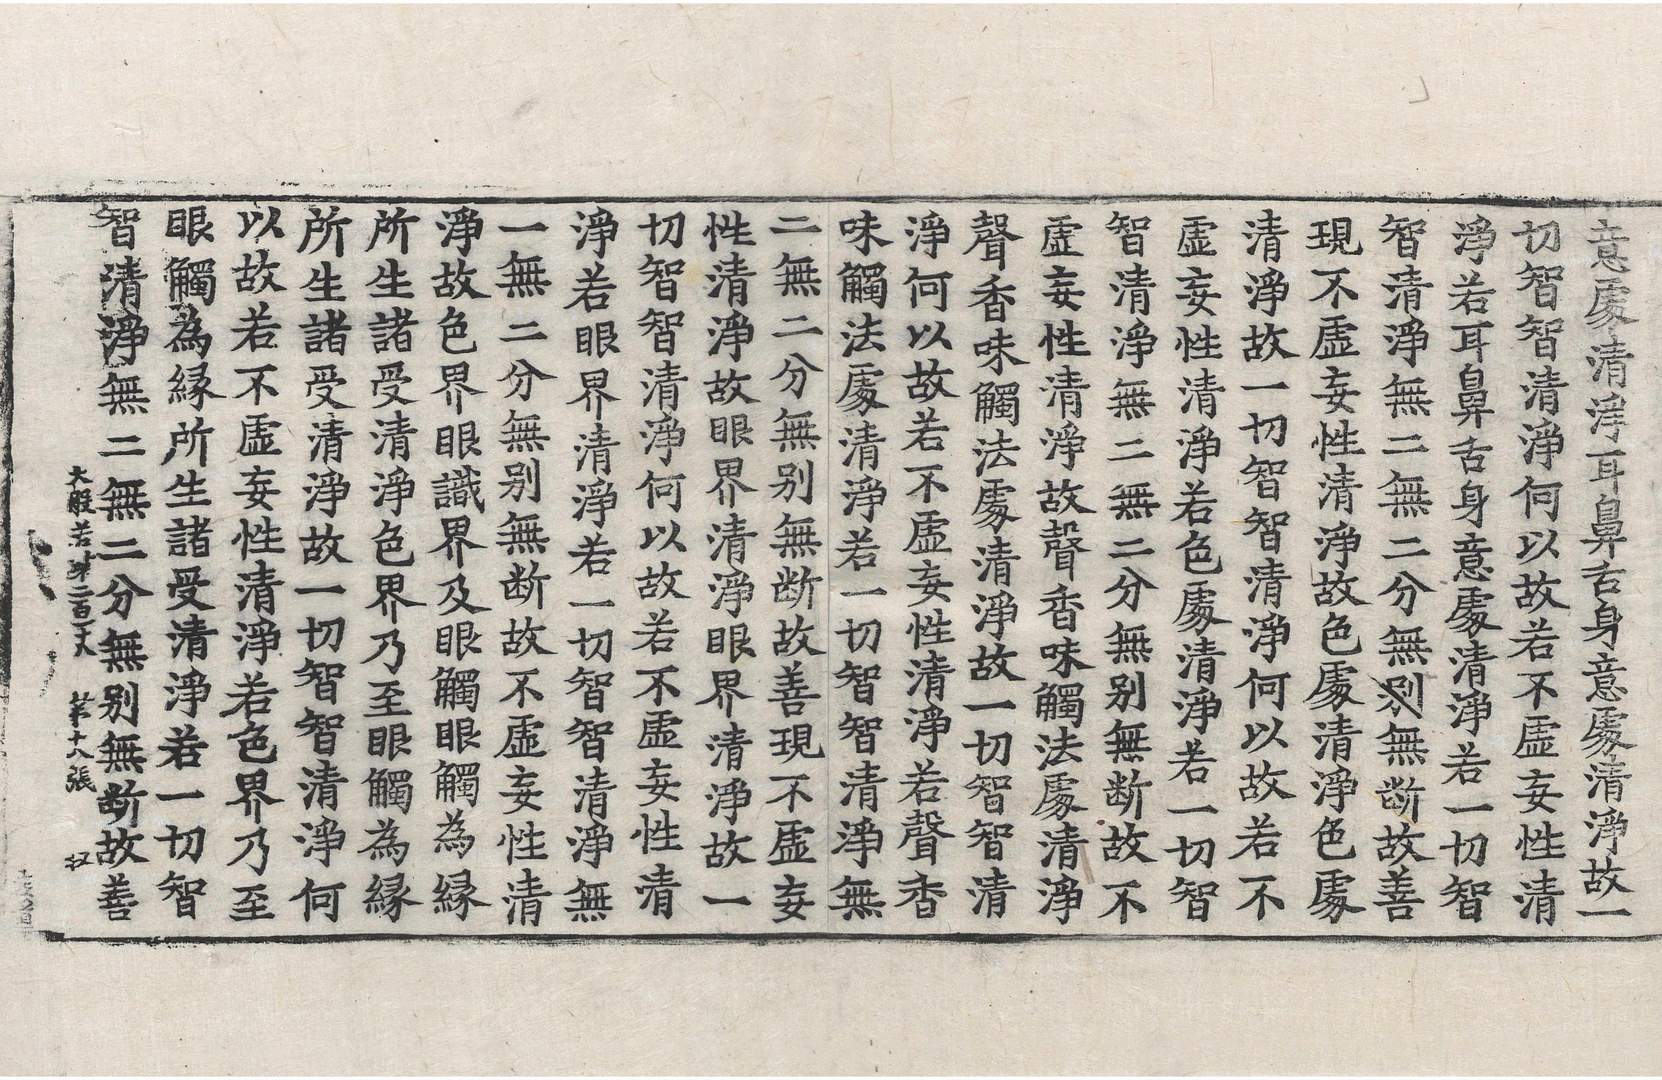 意處清淨耳鼻舌身意處清淨故一
切智智清淨何以故若不虛妄性清
淨若耳鼻舌身意處清淨若一切智
智清淨無二無二分無别無断故善
現不虛妄性清淨故色處清淨色處
清淨故一切智智清淨何以故若不
虛妄性清淨若色處清淨若一切智
智清淨無二無二分無别無断故不
虛妄性清淨故聲香味觸法處清淨
聲香味觸法處清淨故一切智智清
淨何以故若不虛妄性清淨若聲香
味觸法處清淨若一切智智清淨無
二無二分無别無断故善現不虛妄
性清淨故眼界清淨眼界清淨故一
切智智清淨何以故若不虛妄性清
淨若眼界清淨若一切智智清淨無
一無二分無别無断故不虛妄性清
淨故色界眼識界及眼觸眼觸為縁
所生諸受清淨色界乃至眼觸為縁
所生諸受清淨故一切智智清淨何
以故若不虛妄性清淨若色界乃至
眼觸為縁所生諸受清淨若一切智
智清淨無二無二分無别無断故善
大般若 二百 第十八張